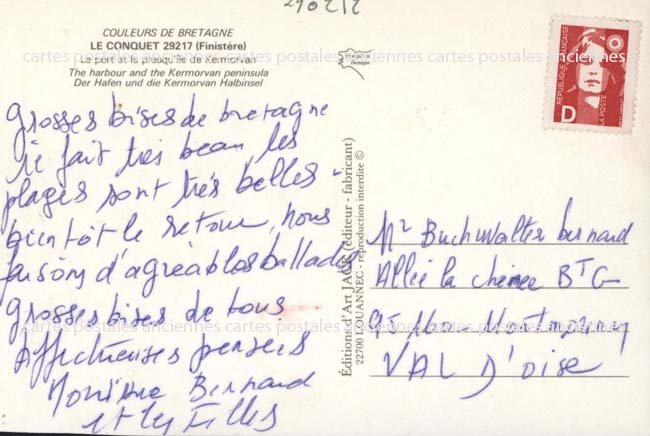 290212
COULEURS DE BRETAGNE
LE CONQUET 29217 (Finistère)
Le port et la presqu'île de Kermorvan
The harbour and the Kermorvan peninsula
Der Hafen und die Kermorvan Halbinsel
cartes postales anciennes cartes postales anciennes cartes postales anciennes
Bretagne
RÉPUBLIQUE FRANÇAISE
D
LA POSTE
grosses bises de bretagne
il fait très beau les
plages sont très belles -
bientôt le retour, nous
faisons d'agréables ballades
grosses bises de tous
affectueuses pensées
Bernard
et les filles
Éditions d'Art JACK (éditeur - fabricant)
22700 LOUANNEC - reproduction interdite ©
Mr Buchwalter bernard
Allée la chenee BTG
95
VAL D'OISE
cartes postales anciennes cartes postales anciennes cartes postales anciennes